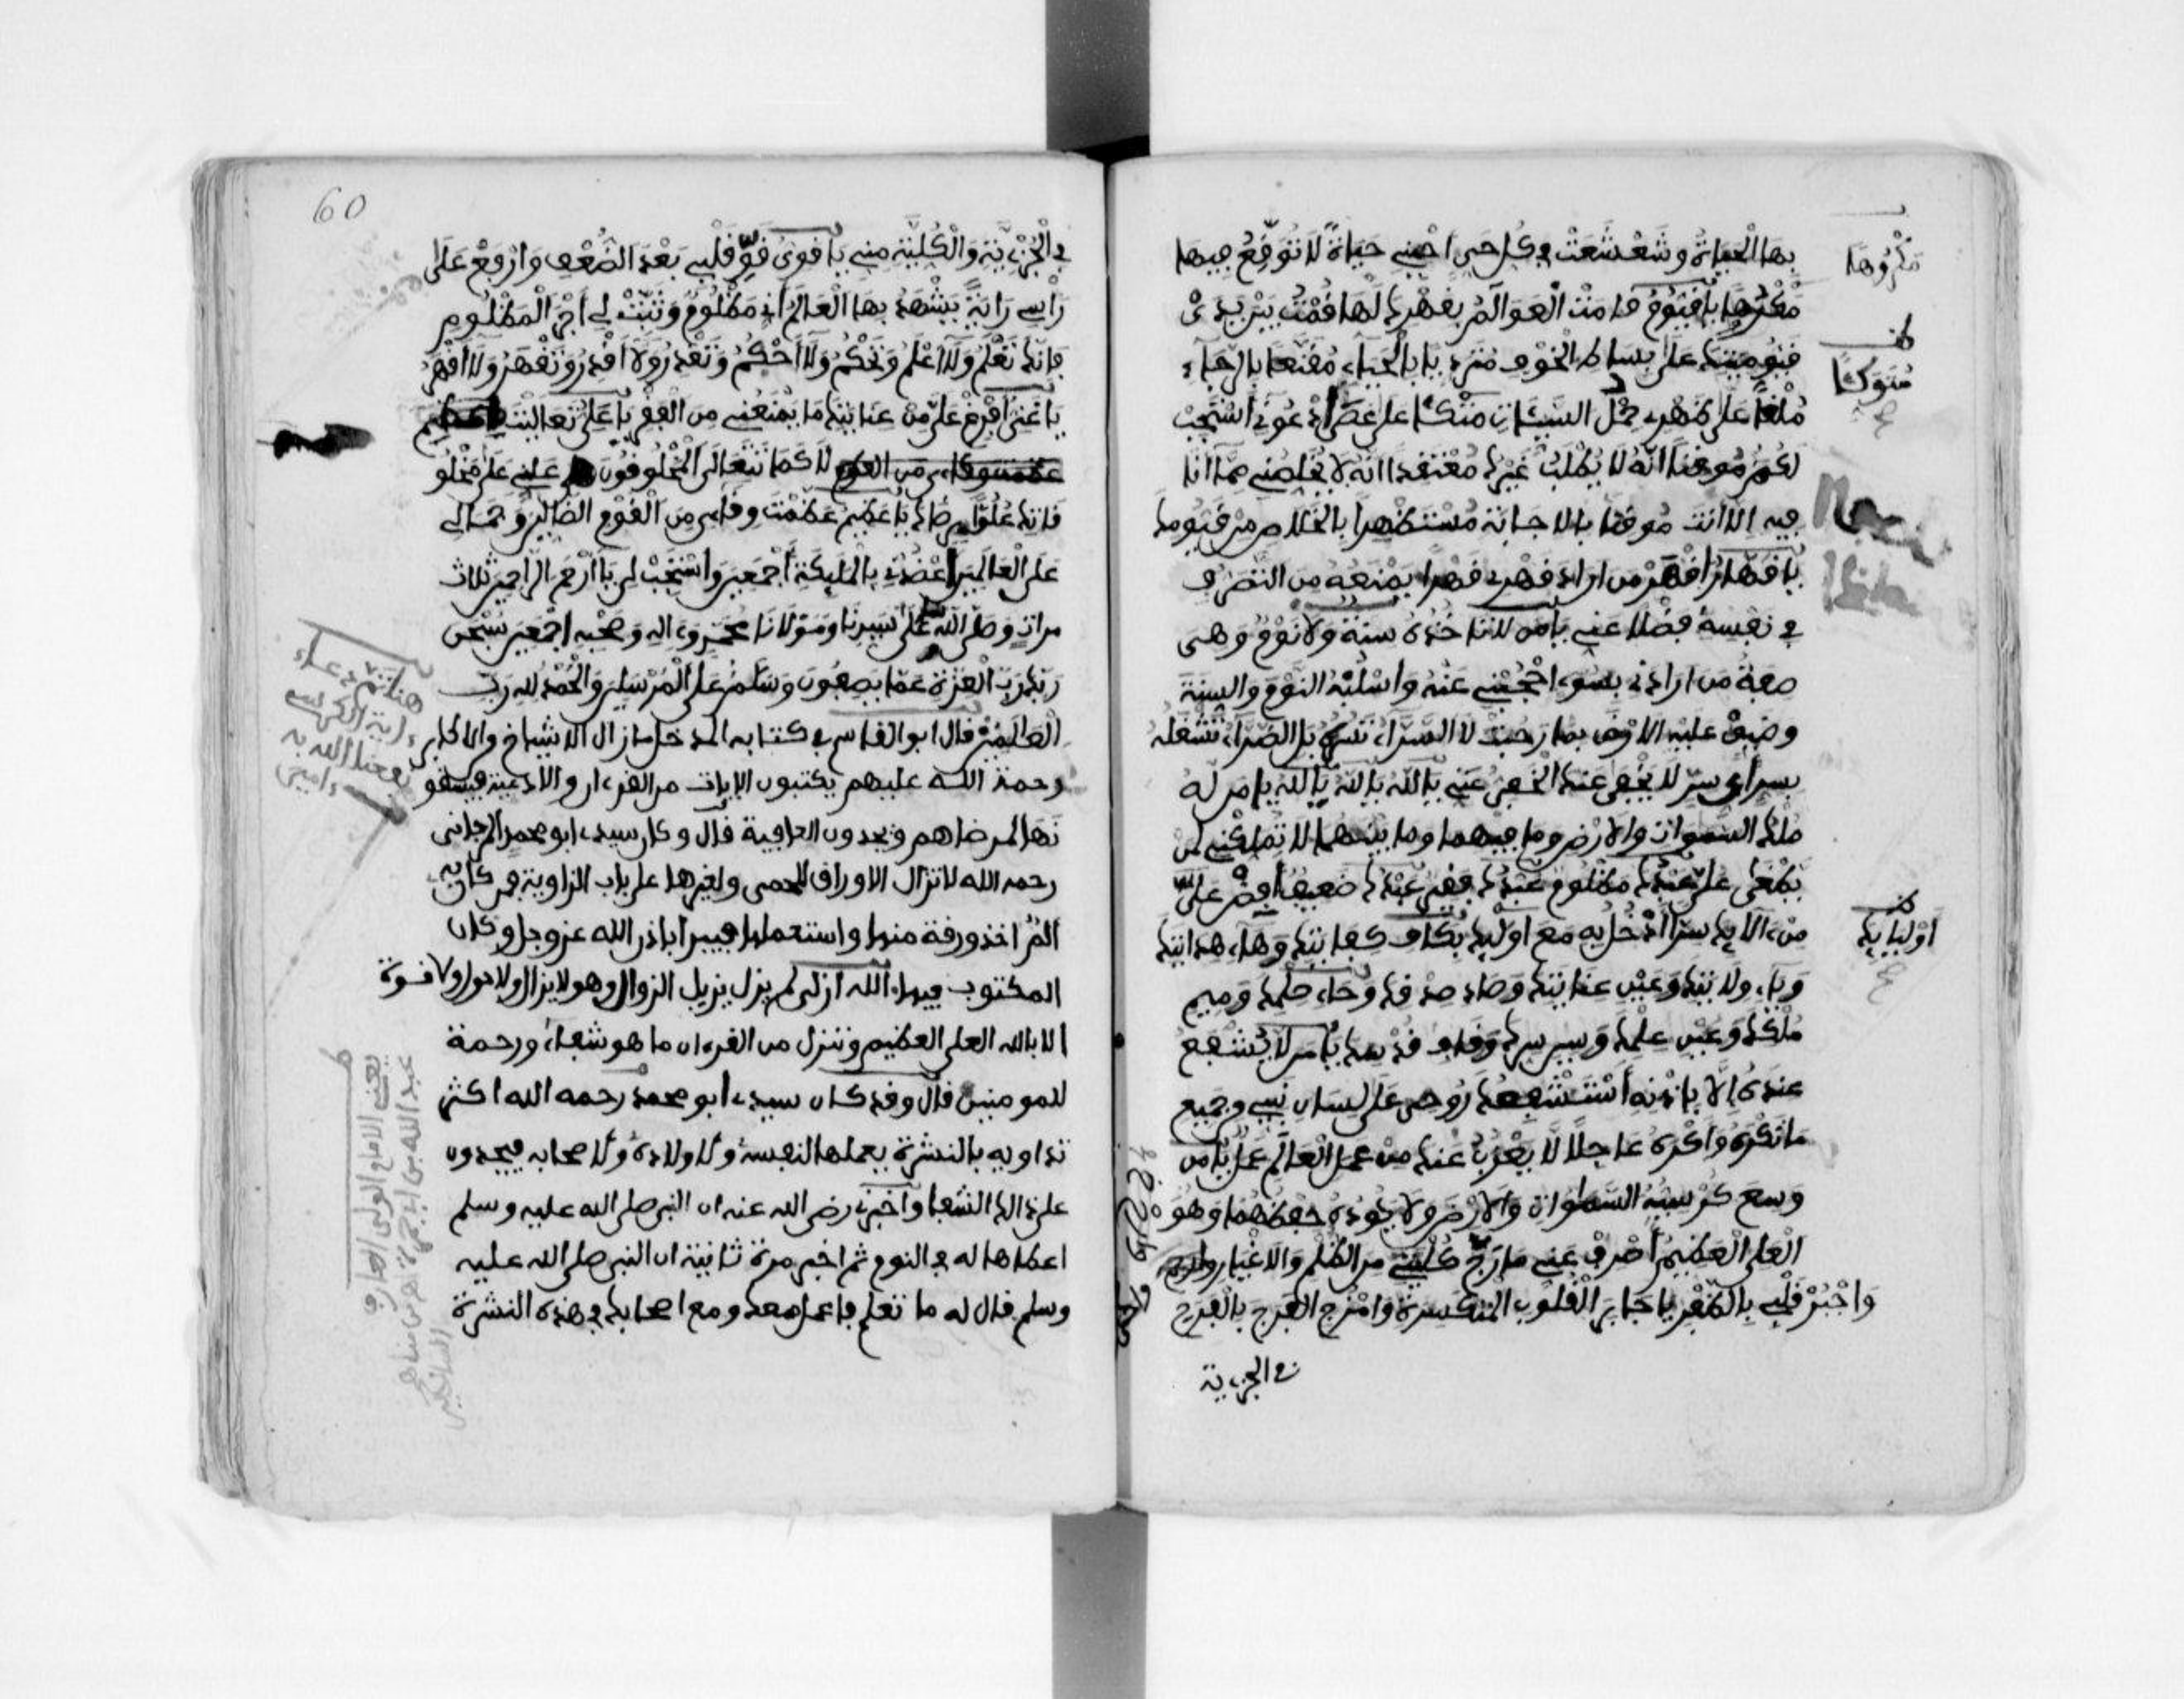 بها الحياة وشعشعت في كل حي احيني حياة لا نتوقع فيها
مكروها يا قيوم قامت العوالم بقهرك لها قمت بين يدي
قيوميتك على بساط الخوف متردّيا بالحياء مقنعا بالرجاء
ملقيا على ظهري حمل السيئات متكئا على عصى ادعوني استجب
لكم موقنا انه لا يطلب غيرك معتقدا انه لا يخلصني مما انا
فيه الا انت موقنا بالاجابة مستظهرا بالخلاص من قيومك
يا قهار اقهر من اراد قهري قهرا يمنعه من التصرف
في نفسه فضلا عني يا من لا تاخذه سنة ولا نوم وهي
صفة من ارادني بسوء احجبني عنه واسلبه النوم والسنة
وضيق عليه الارض بما رحبت لا السراء تسره بل الضراء تشغله
بسر أي سر لا يخفى عنك الخفي عني يا الله يا الله يا الله يا من له
ملك السموات والارض وما فيهما وما بينهما لا تملكني لمن
يطغى علي عبدك مظلوم عبدك فقير عبدك ضعيف افض علي
من الايك سرا ادخل به مع اوليك بكاف كفايتك وهاء هدايتك
وياء ولايتك وعين عنايتك وصاد صدقك وحاء حلمك وميم
ملكك وعين علمك وسين سرك وقاف قدسك يا من لا يشفع
عنده الا باذنه استشفعك روحي على لسان نبي وجميع
ما نكره واكره عاجلا لا يعزب عنك من عمل العالم عمل يا من
وسع كرسيه السموات والارض ولا يؤده حفظهما وهو
العلي العظيم اصرف عني مارج ظلمتي من الظلم والاغيار
واجبر قلبي بالظفر يا جابر القلوب المنكسرة وامزج الفرج بالفرح
في الجزءية
مكروها
متوكئا
اوليايك
60
في الجزئية والكلية مني يا قوي قوّ قلبي بعد الضعف وارفع على
رأسي راية يشهد بها العالم اني مظلوم وتثبت لي اجر المظلوم
فانك تعلم ولا اعلم وتحكم ولا احكم وتقدر ولا اقدر وتقهر ولا اقهر
يا غني افرغ علي من عنايتك ما يمنعني من الفقر يا علي تعاليت
لا كما تتعالى المخلوقون علي على مخلو
قاتك علوا يرضاك يا عظيم عظمت وقاءي من القوم الظالمين وجمالي
على العالمين اعضدني بالملئكة اجمعين واستجب لي يا ارحم الراحمين ثلاث
مرات وصلى الله على سيدنا ومولانا محمد وءاله وصحبه اجمعين سبحن
ربك رب العزة عما يصفون وسلم على المرسلين والحمد لله رب
العلمين قال ابو القاسم في كتابه المدخل ما زال الاشياخ والاكابر
رحمة الله عليهم يكتبون الايات من القرءان والادعية فيسقو
نها لمرضاهم ويجدون العافية قال وكان سيدي ابو محمد المرجاني
رحمه الله لا تزال الاوراق للحمى ولغيرها على باب الزاوية فمن كان به
الم اخذ ورقة منها واستعملها فيبرا باذن الله عز وجل وكان
المكتوب فيها الله ازلي لم يزل يزيل الزوال وهو لا يزال ولا حول ولا قوة
الا بالله العلي العظيم وننزل من القرءان ما هو شفاء ورحمة
للمومنين قال وقد كان سيدي ابو محمد رحمه الله اكثر
تداويه بالنشرة يعملها لنفسه ولاولاده ولاصحابه فيجدون
على ذالك الشفا واخبر رضي الله عنه ان النبي صلى الله عليه وسلم
اعطاها له في النوم ثم اخبر مرة ثانية ان النبي صلى الله عليه
وسلم قال له ما تعلم ما عمل معك ومع اصحابك في هذه النشرة
هنا تم دعاء
ءاية الكرسي
نفعنا الله به
ءامين
يعني الامام الولي العارف
عبد الله بن ابي جمرة